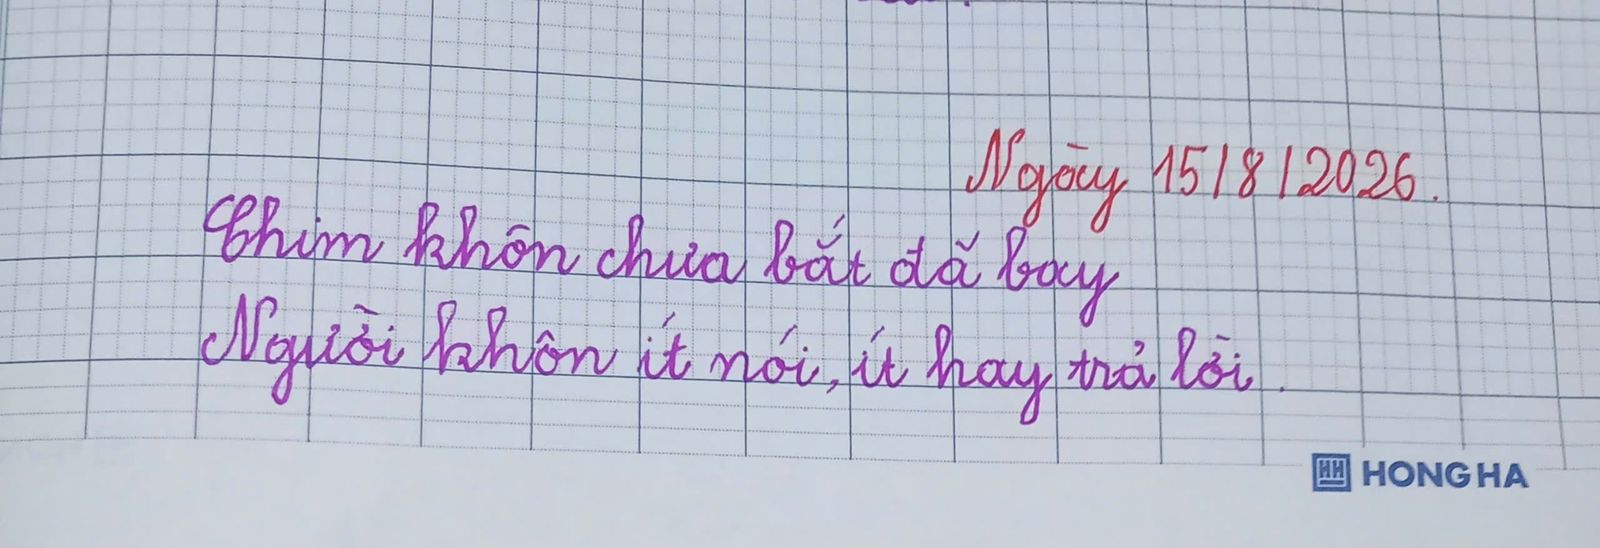 Ngày 15/8/2026.
Chim khôn chưa bắt đã bay
Người khôn ít nói, ít hay trả lời.
HONG HA